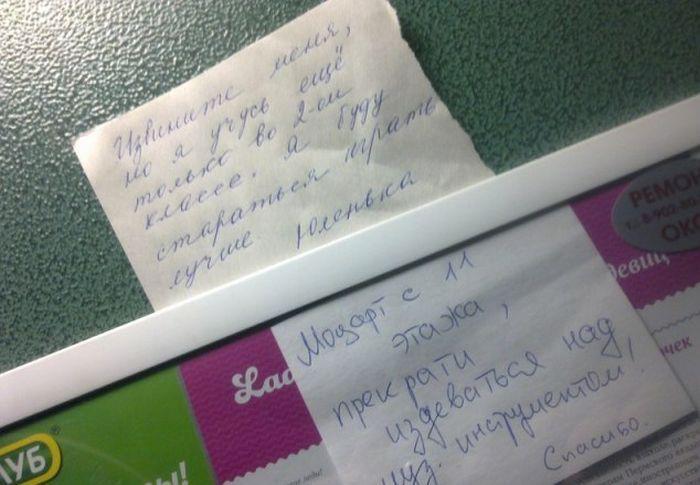 Извините меня,
но я учусь ещё
только во 2-ом
классе. Я буду
стараться играть
лучше Юленька
Моцарт с 11
этажа,
прекрати
издеваться над
муз. инструментом!
Спасибо.
РЕМОН
ОКО
девиц
Lad
очек
УБ
Ы!